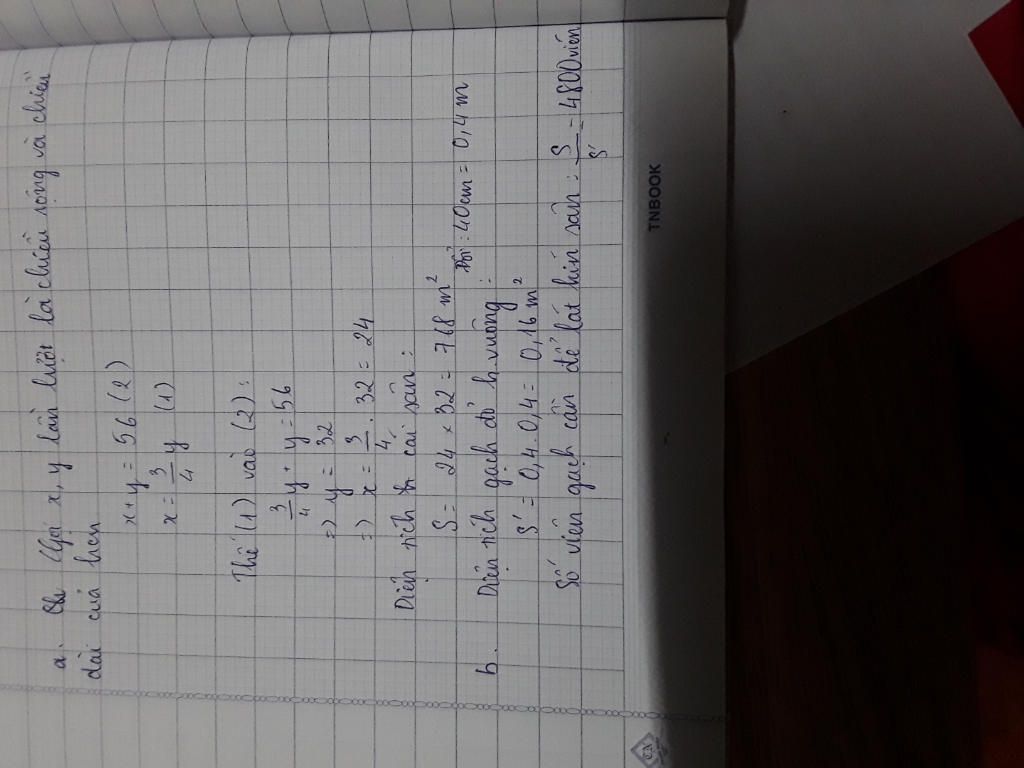 a. Gọi x, y lần lượt là chiều rộng và chiều
dài của hcn
x + y = 56 (2)
x = 3/4 y (1)
Thế (1) vào (2):
3/4 y + y = 56
=> y = 32
=> x = 3/4 . 32 = 24
Diện tích cái sân:
S = 24 × 32 = 768 m²
Đổi: 40cm = 0,4 m
b. Diện tích gạch đỏ h.vuông:
S' = 0,4.0,4 = 0,16 m²
Số viên gạch cần để lát kín sân: S/S' = 4800 viên
TNBOOK